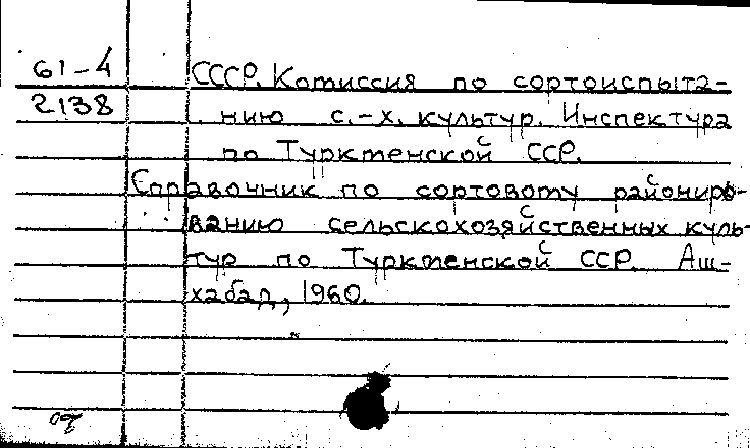 61-4
2138
СССР. Комиссия по сортоиспыта-
нию с.-х. культур. Инспектура
по Туркменской ССР.
Справочник по сортовому райониро-
ванию сельскохозяйственных куль-
тур по Туркменской ССР. Аш-
хабад, 1960.